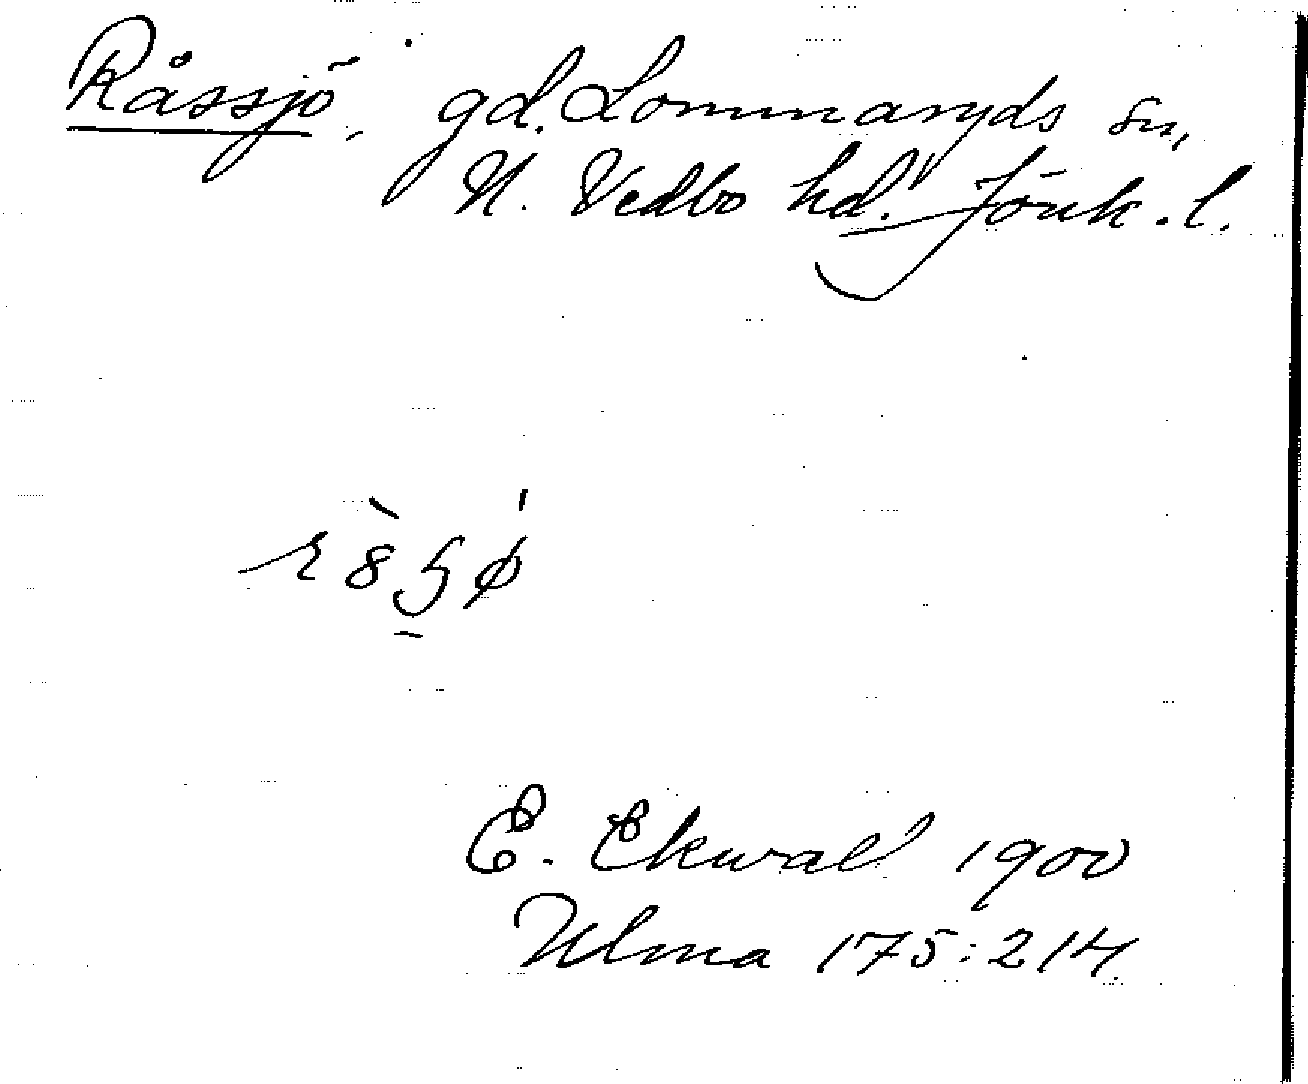 Råssjö, gd. Lommaryds sn,
N. Vedbo hd. Jönk. l.
E. Ekwall 1900
Ulma 175:214